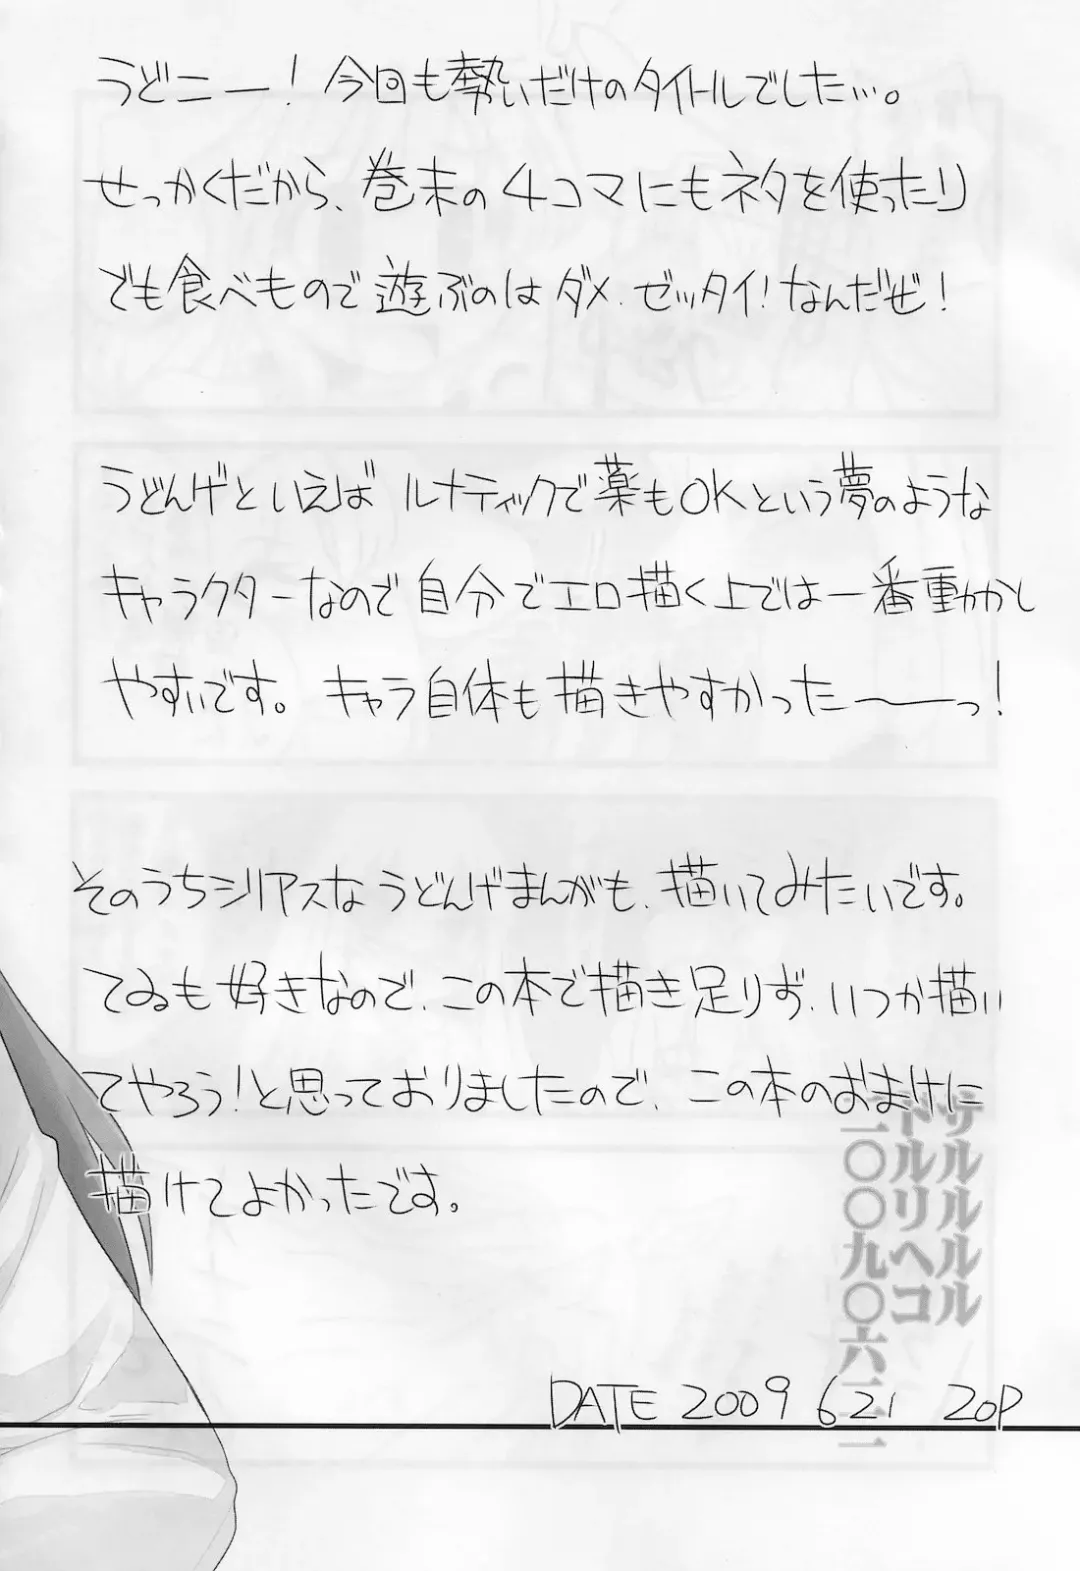 うどニー！今回も勢いだけのタイトルでした…。
せっかくだから、巻末の4コマにもネタを使ったり
でも食べもので遊ぶのはダメ.ゼッタイ！なんだぜ！
うどんげといえば ルナティックで薬もOKという夢のような
キャラクターなので自分でエロ描く上では一番動かし
やすいです。キャラ自体も描きやすかった〜〜っ！
そのうちシリアスなうどんげまんがも、描いてみたいです。
てゐも好きなので、この本で描き足りず、いつか描い
てやろう！と思っておりましたので、この本のおまけに
描けてよかったです。
DATE 2009 6 21 ZOP